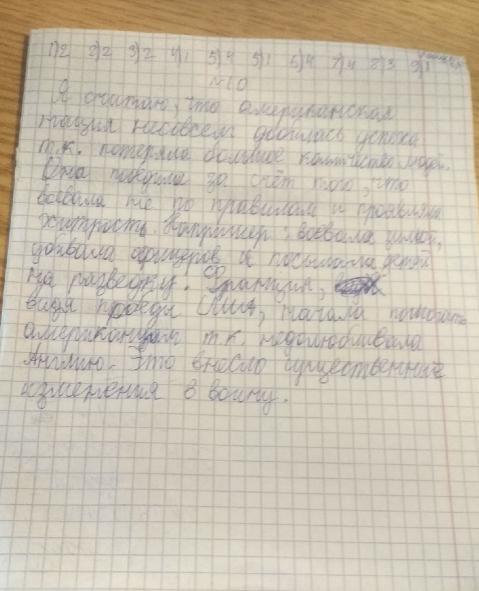 1)2 2)2 3)2 4)1 5)4 5)1 6)4 7)4 8)3 9)1
№10
Я считаю, что американская
нация несовсем добилась успеха
т.к. потеряла большое количество людей.
Она победила за счёт того, что
воевала не по правилам и проявляла
хитрость. Например: воевала зимой,
убивала офицеров и посылала детей
на разведку. Франция,
видя победы США, начала помогать
американцам т.к. недолюбливала
Англию. Это внесло существенные
изменения в войну.